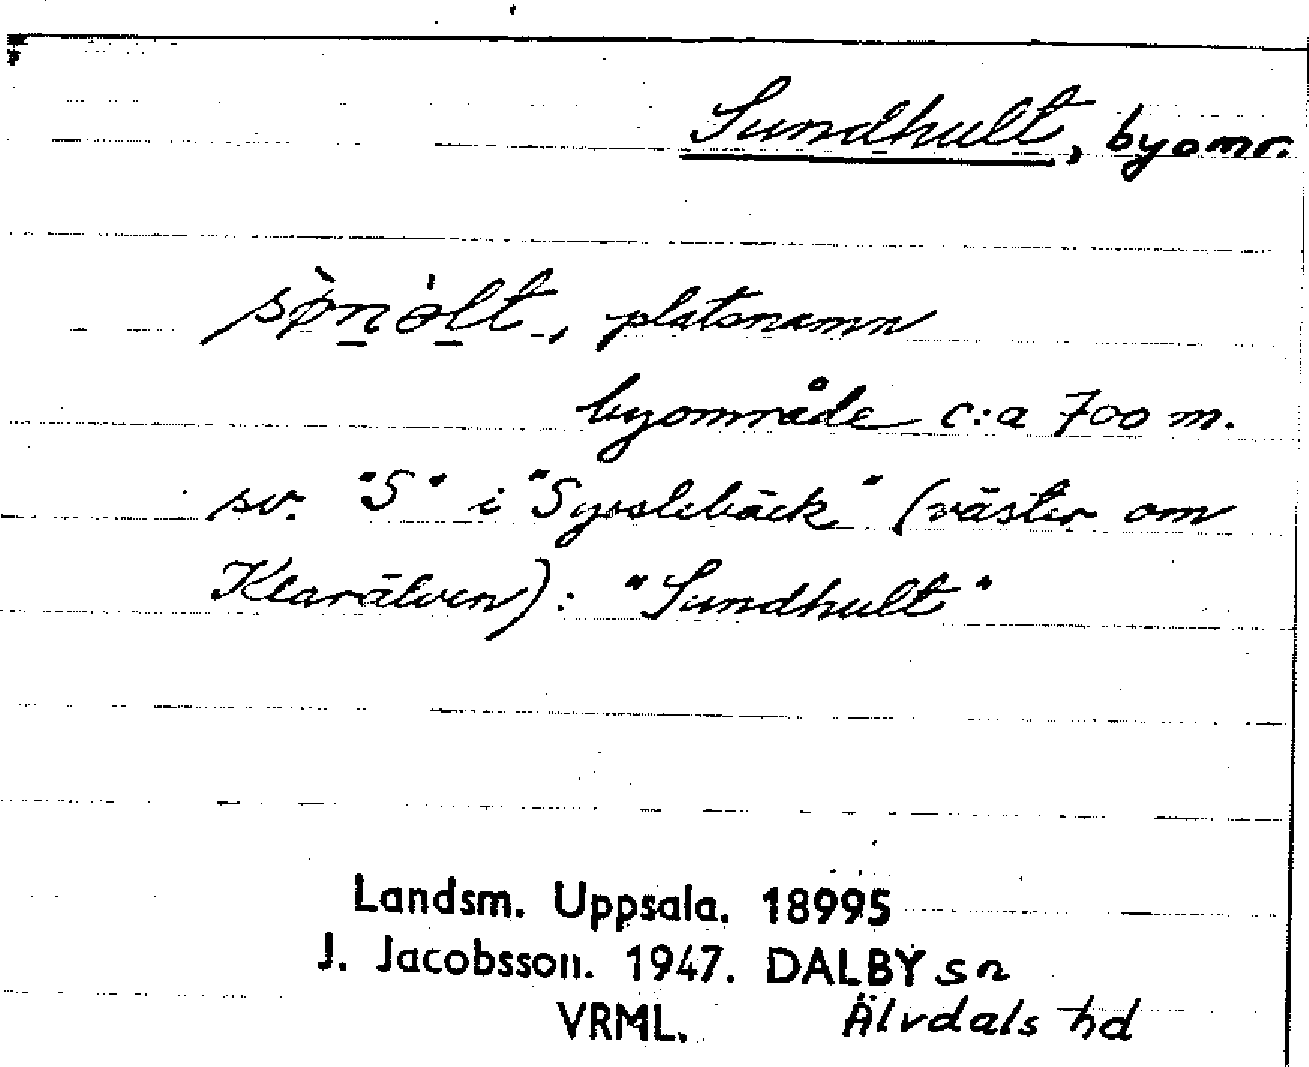 Sundhult, byomr.
sø̀nə̀lt, platsnamn
byområde c:a 700 m.
sv. "S" i "Sysslebäck" (väster om
Klarälven): "Sundhult"
Landsm. Uppsala. 18995
J. Jacobsson. 1947. DALBY sn
VRML. Älvdals hd